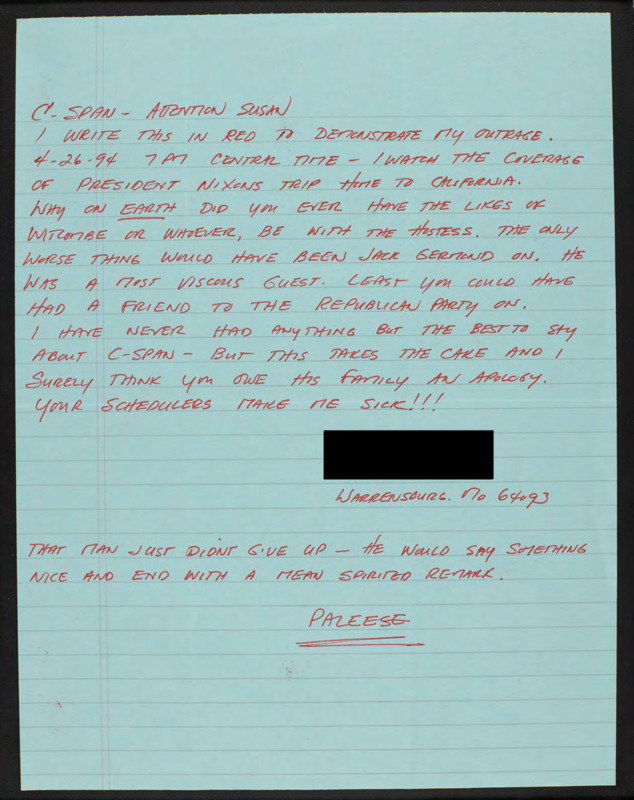 C-SPAN - ATTENTION SUSAN
I WRITE THIS IN RED TO DEMONSTRATE MY OUTRAGE.
4-26-94 7 PM CENTRAL TIME - I WATCH THE COVERAGE
OF PRESIDENT NIXONS TRIP HOME TO CALIFORNIA.
WHY ON EARTH DID YOU EVER HAVE THE LIKES OF
WITCOMBE OR WHOEVER, BE WITH THE HOSTESS. THE ONLY
WORSE THING WOULD HAVE BEEN JACK GERMOND ON. HE
WAS A MOST VISCOUS GUEST. LEAST YOU COULD HAVE
HAD A FRIEND TO THE REPUBLICAN PARTY ON.
I HAVE NEVER HAD ANYTHING BUT THE BEST TO SAY
ABOUT C-SPAN - BUT THIS TAKES THE CAKE AND I
SURELY THINK YOU OWE HIS FAMILY AN APOLOGY.
YOUR SCHEDULERS MAKE ME SICK!!!
WARRENSBURG. MO 64093
THAT MAN JUST DIDNT GIVE UP - HE WOULD SAY SOMETHING
NICE AND END WITH A MEAN SPIRITED REMARK.
PALEESE